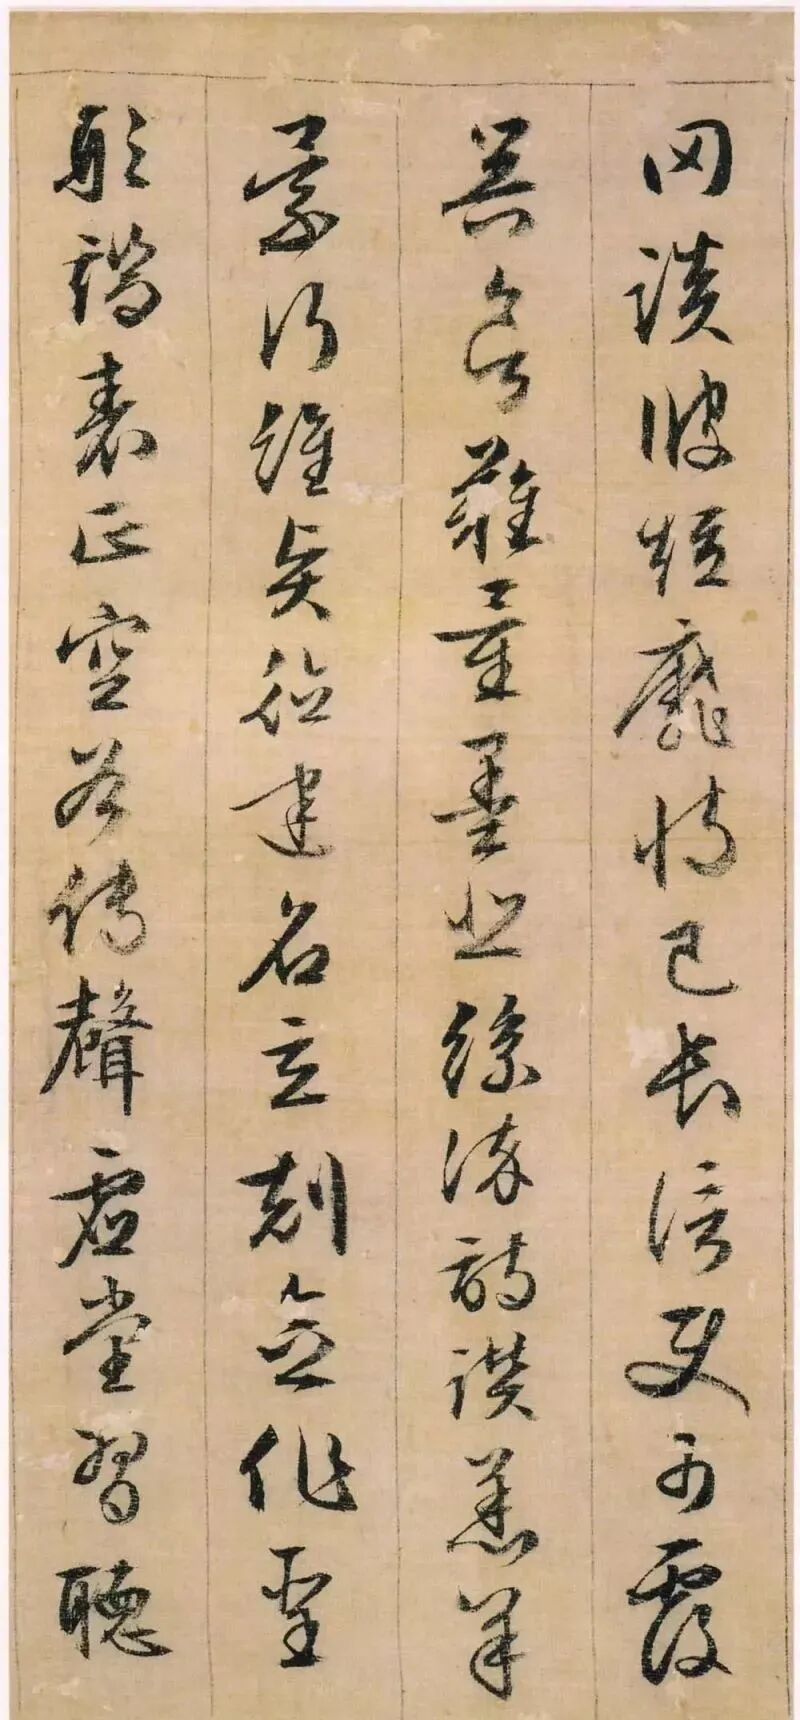 罔談彼短靡恃己長信使可覆
器欲難量墨悲絲染詩讚羔羊
景行維賢德建名立剋念作聖
形端表正空谷傳聲虛堂習聽